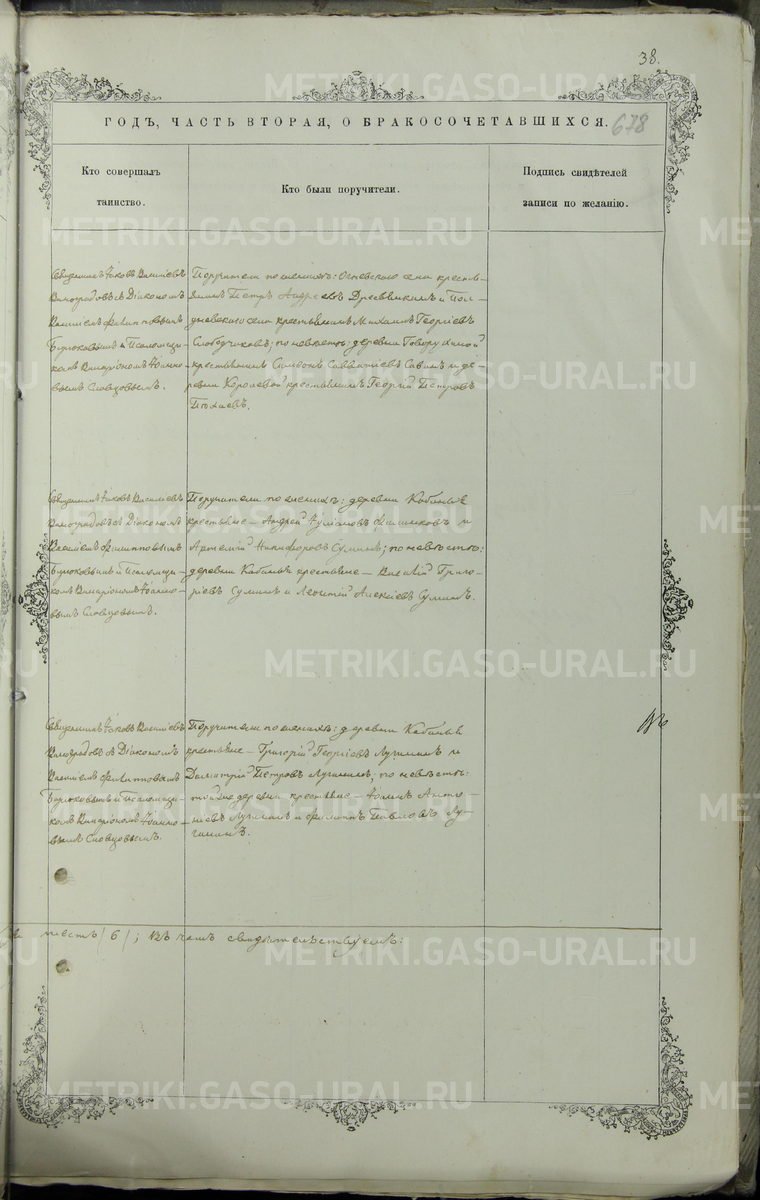 38.
678
ГОДЪ, ЧАСТЬ ВТОРАЯ, О БРАКОСОЧЕТАВШИХСЯ.
Кто совершалъ
таинство.
Кто были поручители.
Подпись свидѣтелей
записи по желанію.
Священникъ Іаковъ Василіевъ
Виноградовъ съ Діакономъ
Василіемъ Филипповымъ
Бирюковымъ и Псаломщи-
комъ Иларіономъ Іоанно-
вымъ Словцовымъ.
Поручители по женихѣ: села крестья-
нинъ Петръ Андреевъ и Пол-
дневскаго села крестьянинъ Михаилъ Георгіевъ
Слободчиковъ; по невѣстѣ: деревни
крестьянинъ Симеонъ Савватіевъ Савинъ и де-
ревни Королевой крестьянинъ Георгій Петровъ
Священникъ Іаковъ Василіевъ
Виноградовъ съ Діакономъ
Василіемъ Филипповымъ
Бирюковымъ и Псаломщи-
комъ Иларіономъ Іоанно-
вымъ Словцовымъ.
Поручители по женихѣ: деревни
крестьяне – Андрей и
Артемій Никифоровъ Суминъ; по невѣстѣ:
деревни крестьяне – Василій Григо-
ріевъ Суминъ и Леонтій Алексіевъ Суминъ.
Священникъ Іаковъ Василіевъ
Виноградовъ съ Діакономъ
Василіемъ Филипповымъ
Бирюковымъ и Псаломщи-
комъ Иларіономъ Іоанно-
вымъ Словцовымъ.
Поручители по женихѣ: деревни
крестьяне – Григорій Георгіевъ Лугининъ и
Димитрій Петровъ Лугининъ; по невѣстѣ:
той же деревни крестьяне – Іоаннъ Анто-
ніевъ Лугининъ и Филиппъ Павловъ Лу-
гининъ.
шесть /6/; въ чемъ свидѣтельствуемъ:
METRIKI.GASO-URAL.RU